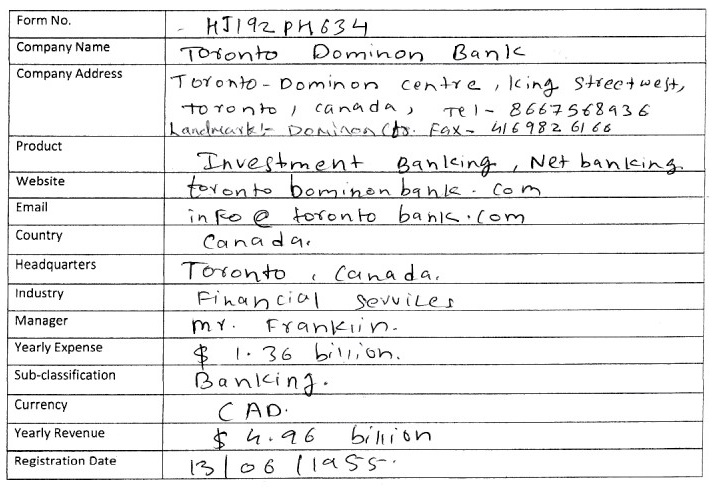 Form No. HJ192PH634
Company Name Toronto Dominon Bank
Company Address Toronto-Dominon centre, King street west,
toronto, canada, Tel- 8667568936
Landmark:- Dominon Ctr. Fax- 416982 6166
Product Investment Banking, Net banking
Website toronto Dominonbank.com
Email info@torontobank.com
Country Canada.
Headquarters Toronto, Canada.
Industry Financial Services
Manager Mr. Franklin.
Yearly Expense $ 1.36 billion.
Sub-classification Banking.
Currency CAD.
Yearly Revenue $ 4.96 billion
Registration Date 13/06/1955.